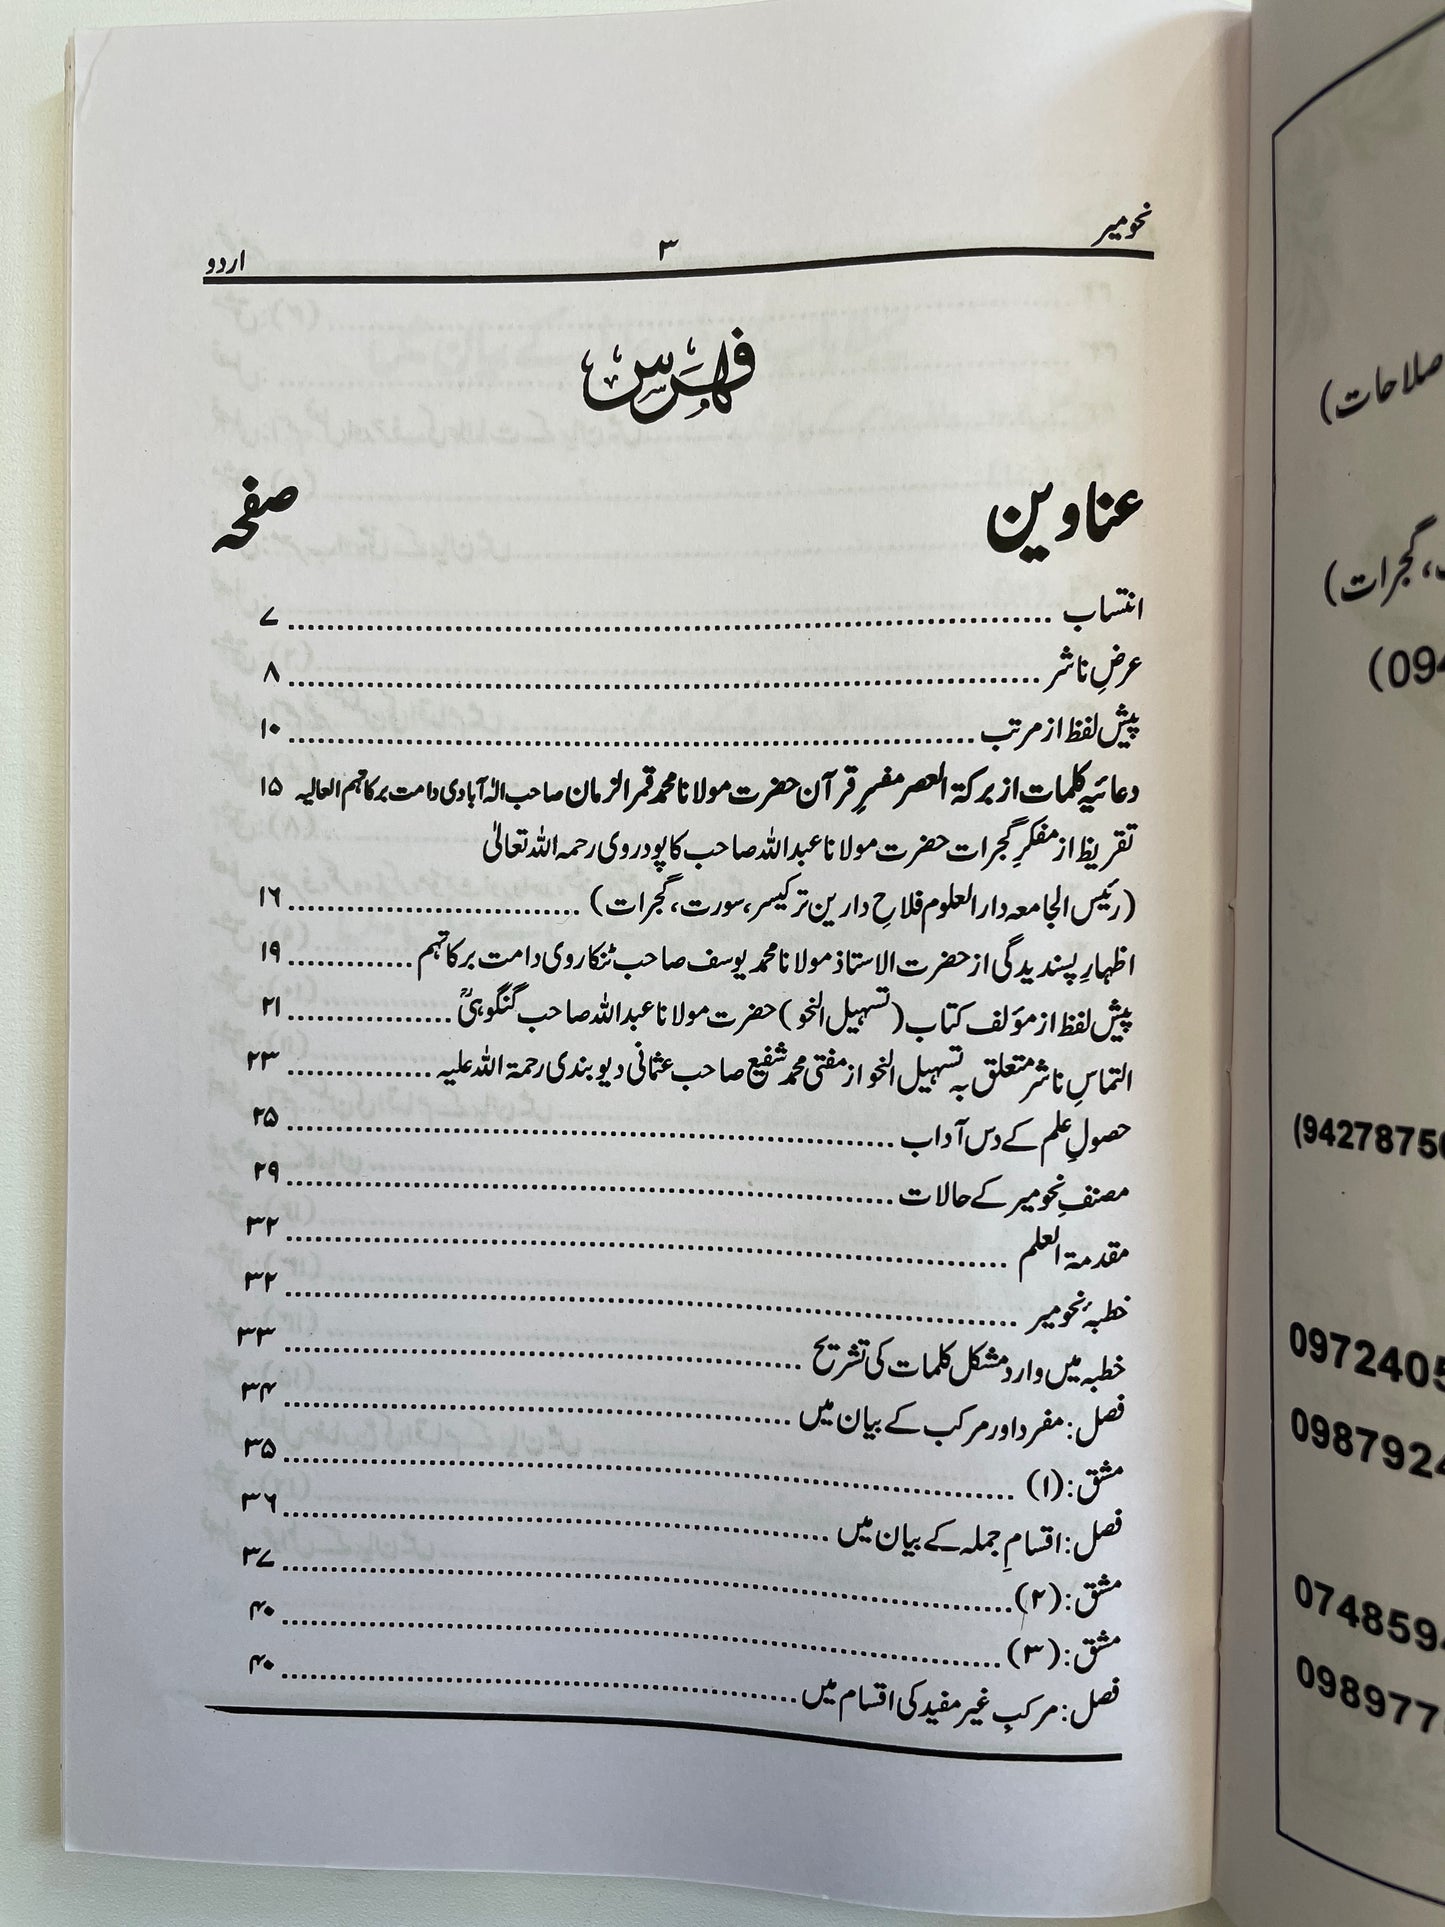 نحومیر ۳ اردو
فہرس
عناوین صفحہ
انتساب ........ ۷
عرضِ ناشر ........ ۸
پیش لفظ از مرتب ........ ۱۰
دعائیہ کلمات از برکۃ العصر مفسرِ قرآن حضرت مولانا محمد قمر الزمان صاحب الٰہ آبادی دامت برکاتہم العالیہ ۱۵
تقریظ از مفکرِ گجرات حضرت مولانا عبد اللہ صاحب کاپودروی رحمہ اللہ تعالیٰ
(رئیس الجامعہ دار العلوم فلاحِ دارین ترکیسر، سورت، گجرات) ........ ۱۶
اظہارِ پسندیدگی از حضرت الاستاذ مولانا محمد یوسف صاحب ٹنکاروی دامت برکاتہم ........ ۱۹
پیش لفظ از مؤلف کتاب (تسہیل النحو) حضرت مولانا عبد اللہ صاحب گنگوہیؒ ........ ۲۱
التماسِ ناشر متعلق بہ تسہیل النحو از مفتی محمد شفیع صاحب عثمانی دیوبندی رحمۃ اللہ علیہ ........ ۲۳
حصولِ علم کے دس آداب ........ ۲۵
مصنفِ نحومیر کے حالات ........ ۲۹
مقدمۃ العلم ........ ۳۲
خطبۂ نحومیر ........ ۳۲
خطبہ میں وارد مشکل کلمات کی تشریح ........ ۳۳
فصل: مفرد اور مرکب کے بیان میں ........ ۳۴
مشق: (۱) ........ ۳۵
فصل: اقسامِ جملہ کے بیان میں ........ ۳۶
مشق: (۲) ........ ۳۷
مشق: (۳) ........ ۴۰
فصل: مرکبِ غیر مفید کی اقسام میں ........ ۴۰
صلاحات)
، گجرات)
(094
(9427875
097240
098792
074859
098977